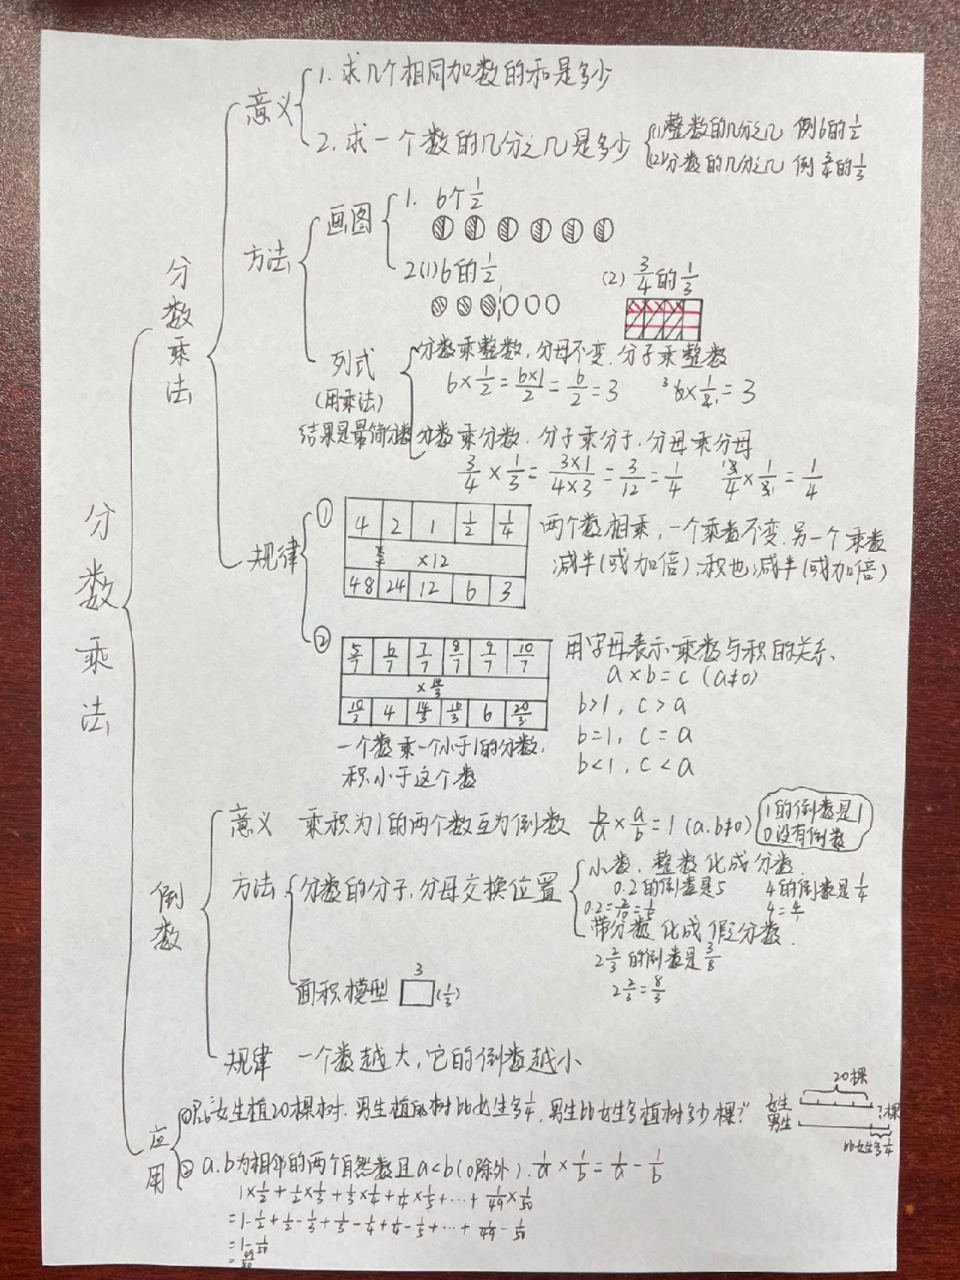 分数乘法
分数乘法
意义
1. 求几个相同加数的和是多少
2. 求一个数的几分之几是多少
(1)整数的几分之几 例6的1/2
(2)分数的几分之几 例3/4的1/3
方法
画图
1. 6个1/2
2(1)6的1/2
(2) 3/4的1/3
列式
(用乘法)
结果是最简分数
分数乘整数,分母不变.分子乘整数
6×1/2=6×1/2=6/2=3
6×1/2=3
分数乘分数.分子乘分子,分母乘分母
3/4×1/3=3×1/4×3=3/12=1/4
3/4×1/3=1/4
规律
①
4 2 1 1/2 1/4
×12
48 24 12 6 3
两个数相乘,一个乘数不变.另一个乘数
减半(或加倍)积也减半(或加倍)
②
5/7 6/7 7/7 8/7 9/7 10/7
×14/3
10/3 4 14/3 16/3 6 20/3
一个数乘一个小于1的分数,
积小于这个数
用字母表示乘数与积的关系
a×b=c (a≠0)
b>1, c>a
b=1, c=a
b<1, c<a
倒数
意义 乘积为1的两个数互为倒数 b/a×a/b=1 (a.b≠0)
1的倒数是1
0没有倒数
方法
分数的分子,分母交换位置
小数,整数化成分数
0.2的倒数是5 4的倒数是1/4
0.2=2/10=1/5 4=4/1
带分数化成假分数.
2 2/3的倒数是3/8
2 2/3=8/3
面积模型 3 (1/3)
规律 一个数越大,它的倒数越小
应用
女生植20棵树.男生植的树比女生多1/4,男生比女生多植树多少棵?
20棵
女生
男生
?棵
比女生多1/4
② a.b为相邻的两个自然数且a<b(0除外).1/a×1/b=1/a-1/b
1×1/2+1/2×1/3+1/3×1/4+1/4×1/5+…+1/49×1/50
=1-1/2+1/2-1/3+1/3-1/4+1/4-1/5+…+1/49-1/50
=1-1/50
=49/50